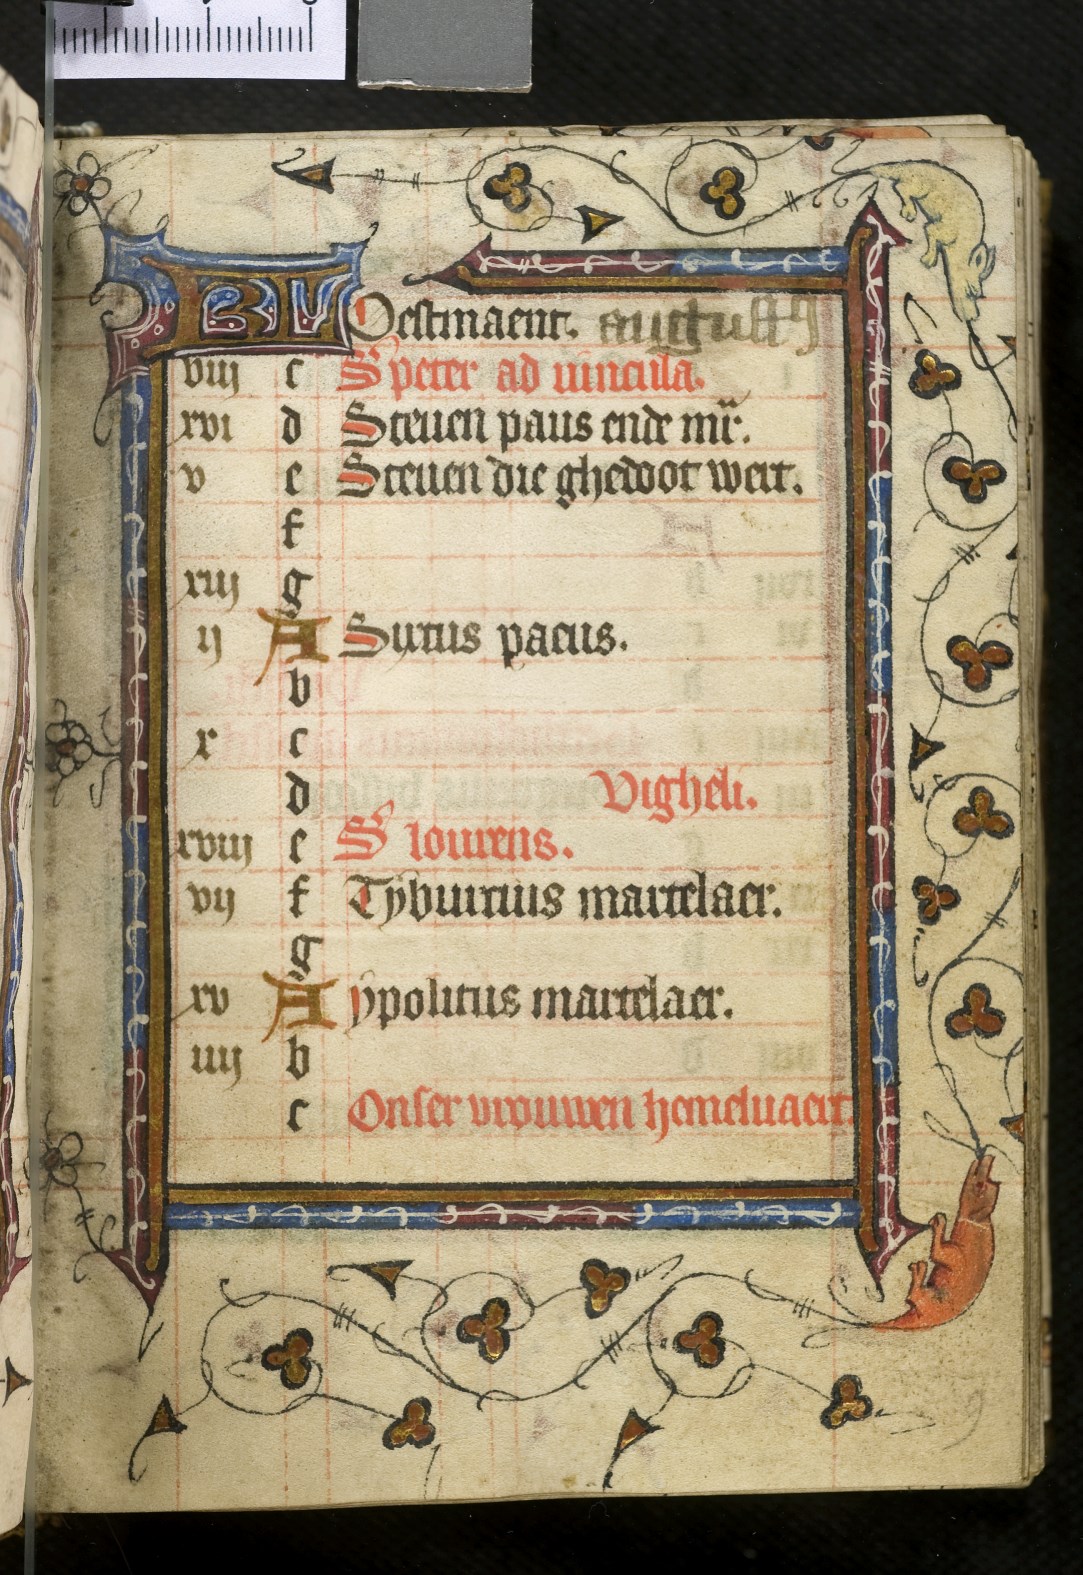 KL Oestmaent. augustus
viij c S' peter ad uincula.
xvi d Steuen paus ende mr̄.
v e Steuen die ghedoot wert.
f
xiij g
ij A Sixtus paeus.
b
x c
d Vigheli.
xviij e S' lourens.
vij f Tyburtius martelaer.
g
xv A ypolitus martelaer.
iiij b
c Onser vrouwen hemeluaert.